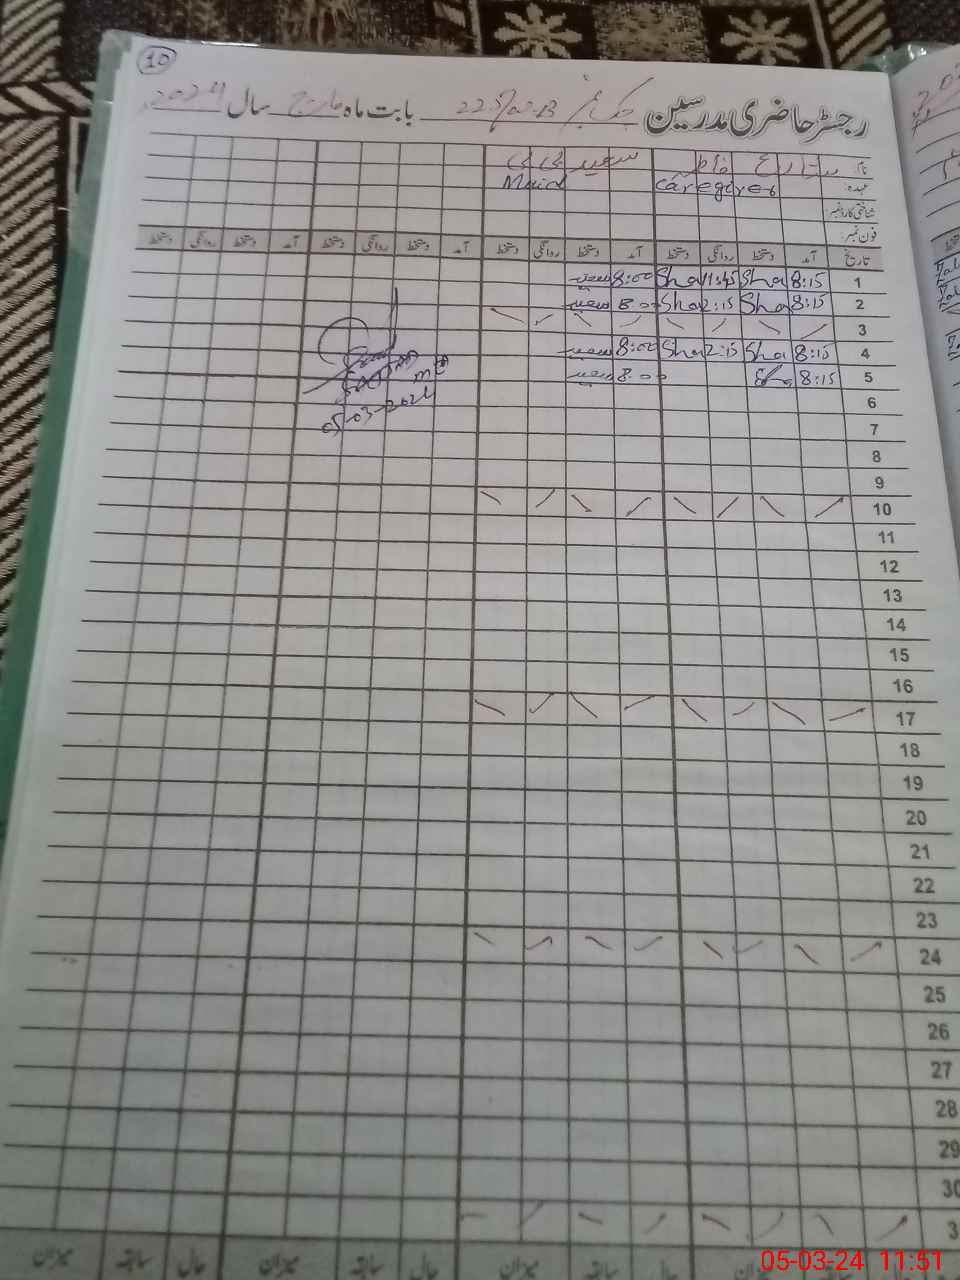 10
رجسٹر حاضری مدرسین چک نمبر بابت ماہ مارچ سال 2024
نام: فاطمہ سعید بی بی
عہدہ: Caregiver Maid
شناختی کارڈ نمبر:
فون نمبر:
تاریخ آمد دستخط روانگی دستخط آمد دستخط روانگی دستخط آمد دستخط روانگی دستخط آمد دستخط روانگی دستخط
1 8:15 Sha 11:45 Sha 8:00 سعید
2 8:15 Sha 2:15 Sha 8:00 سعید
3
4 8:15 Sha 2:15 Sha 8:00 سعید
5 8:15 Sha 8:00 سعید
05-03-2024
6
7
8
9
10
11
12
13
14
15
16
17
18
19
20
21
22
23
24
25
26
27
28
29
30
3
حال سابقہ میزان حال سابقہ میزان حال سابقہ میزان
05-03-24 11:51